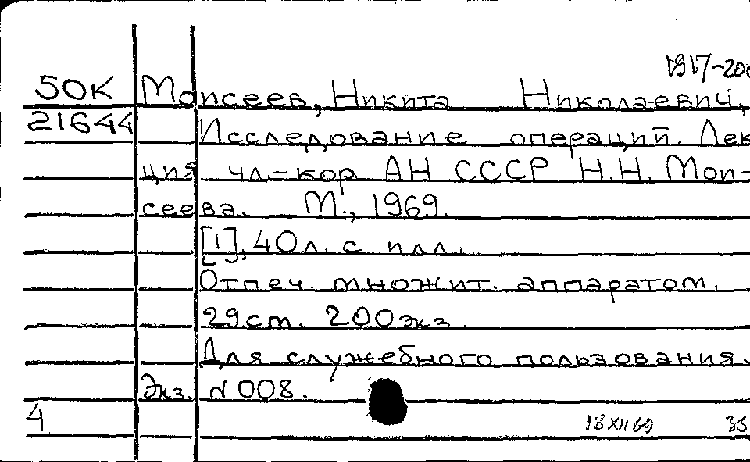 1917-200
50К Моисеев, Никита Николаевич,
21644 Исследование операций. Лек
ция чл-кор АН СССР Н.Н. Мои-
сеева. М., 1969.
[1], 40л. с илл.
Отпеч. множит. аппаратом.
29см. 200экз.
Для служебного пользования.
Экз. N 008.
4 18 XII 69 35